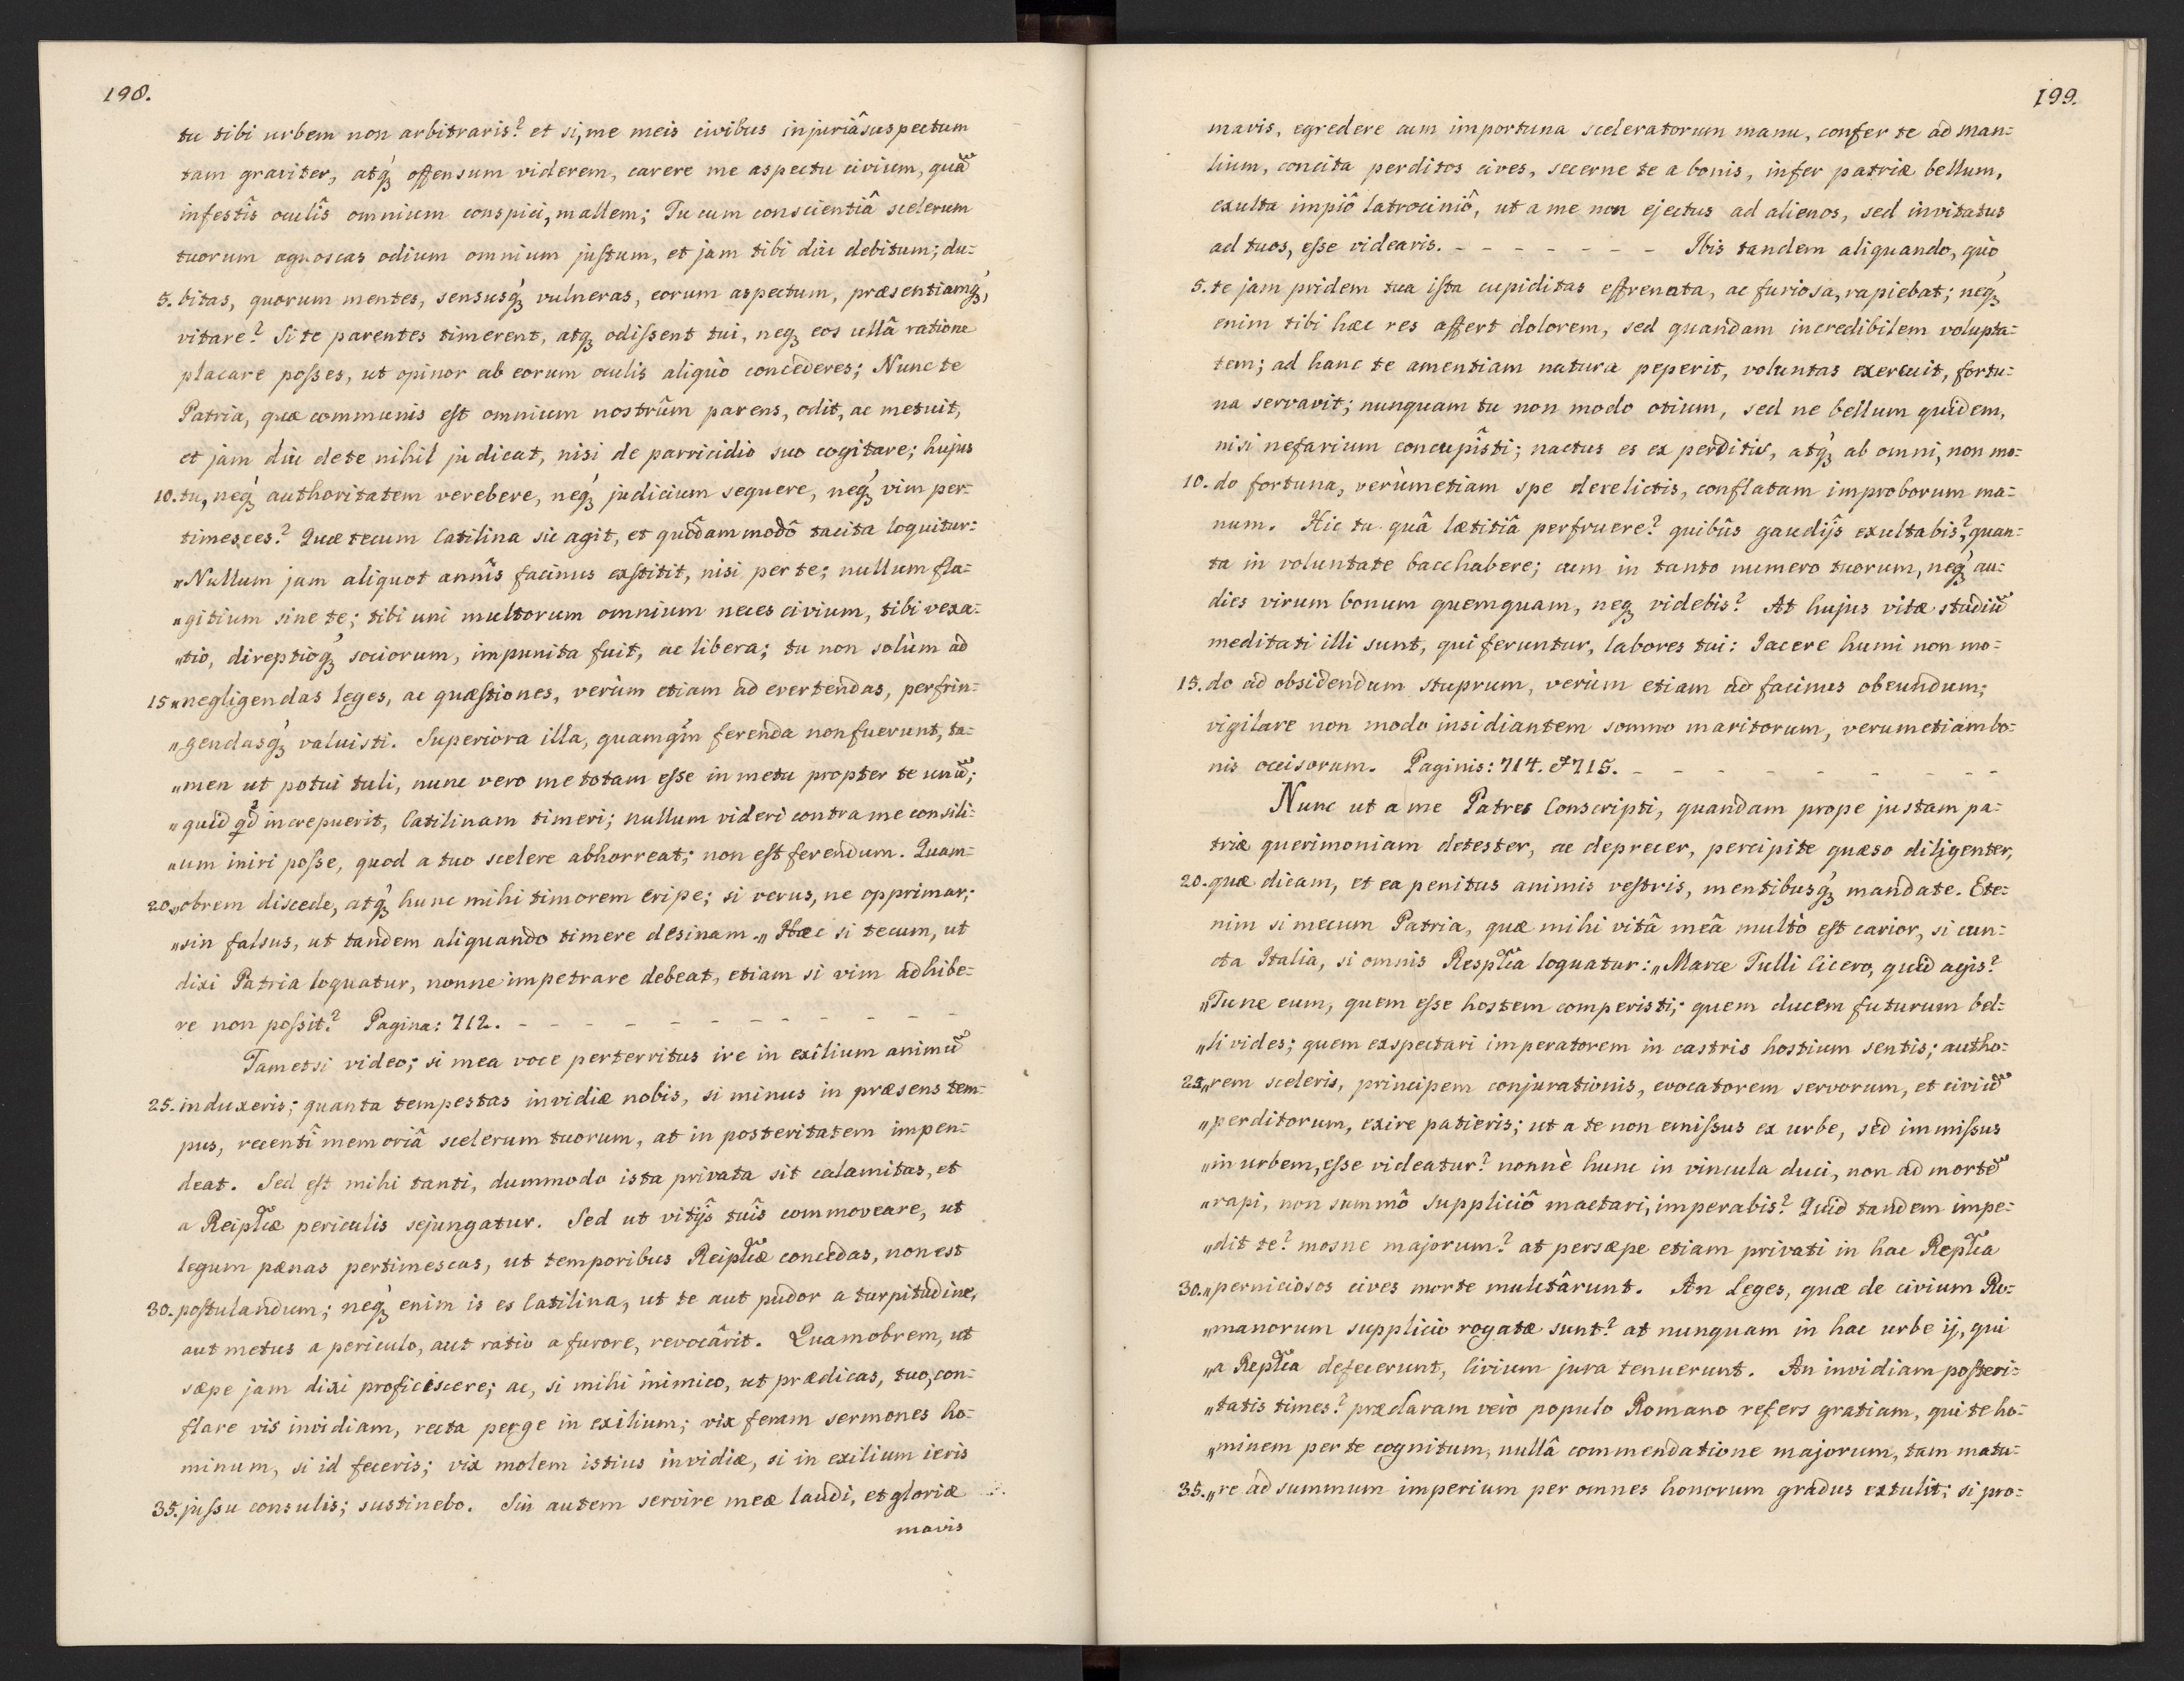 198.
tu tibi urbem non arbitraris? et si, me meis civibus injuriâ suspectum
tam graviter, atq́ȝ offensum viderem, carere me aspectu civium, quã
infestîs oculîs omnium conspici, mallem; Tu cum conscientiâ scelerum
tuorum agnoscas odium omnium justum, et jam tibi diu debitum; du=
5. bitas, quorum mentes, sensusq́ȝ vulneras, eorum aspectum, præsentiamq́ȝ,
vitare? Si te parentes timerent, atqȝ odissent tui, neqȝ eos ullâ ratione
placare posses, ut opinor ab eorum oculis aliquò concederes; Nunc te
Patria, quæ communis est omnium nostrûm parens, odit, ac metuit,
et jam diu de te nihil judicat, nisi de parricidio suo cogitare; hujus
10. tu, neq́ȝ authoritatem verebere, neq́ȝ judicium sequere, neq́ȝ vim per=
timesces? Quæ tecum Catilina sic agit, et quôdammodô tacita loquitur:
„Nullum jam aliquot annîs facinus exstitit, nisi per te; nullum fla=
„gitium sine te; tibi uni multorum omnium neces civium, tibi vexa=
„tio, direptioq́ȝ sociorum, impunita fuit, ac libera; tu non solùm ad
15 „negligendas leges, ac quæstiones, verùm etiam ad evertendas, perfrin=
„gendasq́ȝ valuisti. Superiora illa, quamq̃m ferenda non fuerunt, ta=
„men ut potui tuli, nunc vero me totam esse in metu propter te unũ;
„quid qd increpuerit, Catilinam timeri; nullum videri contra me consili=
„um iniri posse, quod a tuo scelere abhorreat; non est ferendum. Quam=
20. „obrem discede, atq́ȝ hunc mihi timorem eripe; si verus, ne opprimar;
„sin falsus, ut tandem aliquando timere desinam.„ Hæc si tecum, ut
dixi Patria loquatur, nonne impetrare debeat, etiam si vim adhibe=
re non possit? Pagina: 712. - - - - - - - - - - -
Tametsi video; si mea voce perterritus ire in exilium animũ
25. induxeris; quanta tempestas invidiæ nobis, si minus in præsens tem=
pus, recentî memoriâ scelerum tuorum, at in posteritatem impen=
deat. Sed est mihi tanti, dummodo ista privata sit calamitas, et
a Reipl̃cæ periculis sejungatur. Sed ut vitijs tuîs commoveare, ut
legum pœnas pertimescas, ut temporibus Reipl̃cæ concedas, non est
30. postulandum; neq́ȝ enim is es Catilina, ut te aut pudor a turpitudine,
aut metus a periculo, aut ratio a furore, revocârit. Quamobrem, ut
sæpe jam dixi proficiscere; ac, si mihi inimico, ut prædicas, tuo, con=
flare vis invidiam, recta perge in exilium; vix feram sermones ho=
minum, si id feceris; vix molem istius invidiæ, si in exilium ieris
35. jussu consulis; sustinebo. Sin autem servire meæ laudi, et gloriæ
mavis
199.
mavis, egredere cum importuna sceleratorum manu, confer te ad Man=
lium, concita perditos cives, secerne te a bonis, infer patriæ bellum,
exulta impiô latrociniô, ut a me non ejectus ad alienos, sed invitatus
ad tuos, esse videaris. - - - - - - - Ibis tandem aliquando, quò
5. te jam pridem tua ista cupiditas effrenata, ac furiosa, rapiebat; neq́ȝ
enim tibi hæc res affert dolorem, sed quandam incredibilem volupta=
tem; ad hanc te amentiam natura peperit, voluntas exercuit, fortu=
na servavit; nunquam tu non modo otium, sed ne bellum quidem,
nisi nefarium concupîsti; nactus es ex perditis, atq́ȝ ab omni, non mo=
10. do fortuna, verùmetiam spe derelictis, conflatam improborum ma=
num. Hic tu quâ lætitiâ perfruere? quibûs gaudijs exultabis? quan=
ta in voluntate bacchabere; cum in tanto numero tuorum, neq́ȝ au=
dies virum bonum quemquam, neqȝ videbis? At hujus vitæ studiũ
meditati illi sunt, qui feruntur, labores tui: Jacere humi non mo=
15. do ad obsidendum stuprum, verùm etiam ad facinus obeundum;
vigilare non modo insidiantem somno maritorum, verumetiam bo=
nis occisorum. Paginis: 714. & 715. - - - - - - - - -
Nunc ut a me Patres Conscripti, quandam prope justam pa=
triæ querimoniam detester, ac deprecer, percipite quæso diligenter,
20. quæ dicam, et ea penitus animis vestris, mentibusq́ȝ mandate. Ete=
nim si mecum Patria, quæ mihi vitâ meâ multò est carior, si cun=
cta Italia, si omnis Respl̃ca loquatur: „Marce Tulli Cicero, quid agis?
„Tune eum, quem esse hostem comperisti; quem ducem futurum bel=
„li vides; quem exspectari imperatorem in castris hostium sentis; autho=
25. „rem sceleris, principem conjurationis, evocatorem servorum, et civiũ
„perditorum, exire patieris; ut a te non emissus ex urbe, sed immissus
„in urbem, esse videatur? nonnè hunc in vincula duci, non ad mortẽ
„rapi, non summô suppliciô mactari, imperabis? Quid tandem impe=
„dit te? mosne majorum? at persæpe etiam privati in hac Repl̃ca
30. „perniciosos cives morte mulctârunt. An Leges, quæ de civium Ro=
„manorum supplicio rogatæ sunt? at nunquam in hac urbe ij, qui
„a Repl̃ca defecerunt, Civium jura tenuerunt. An invidiam posteri=
„tatis times? præclaram verò populo Romano refers gratiam, qui te ho=
„minem per te cognitum, nullâ commendatione majorum, tam matu=
35. „re ad summum imperium per omnes honorum gradus extulit; si pro=